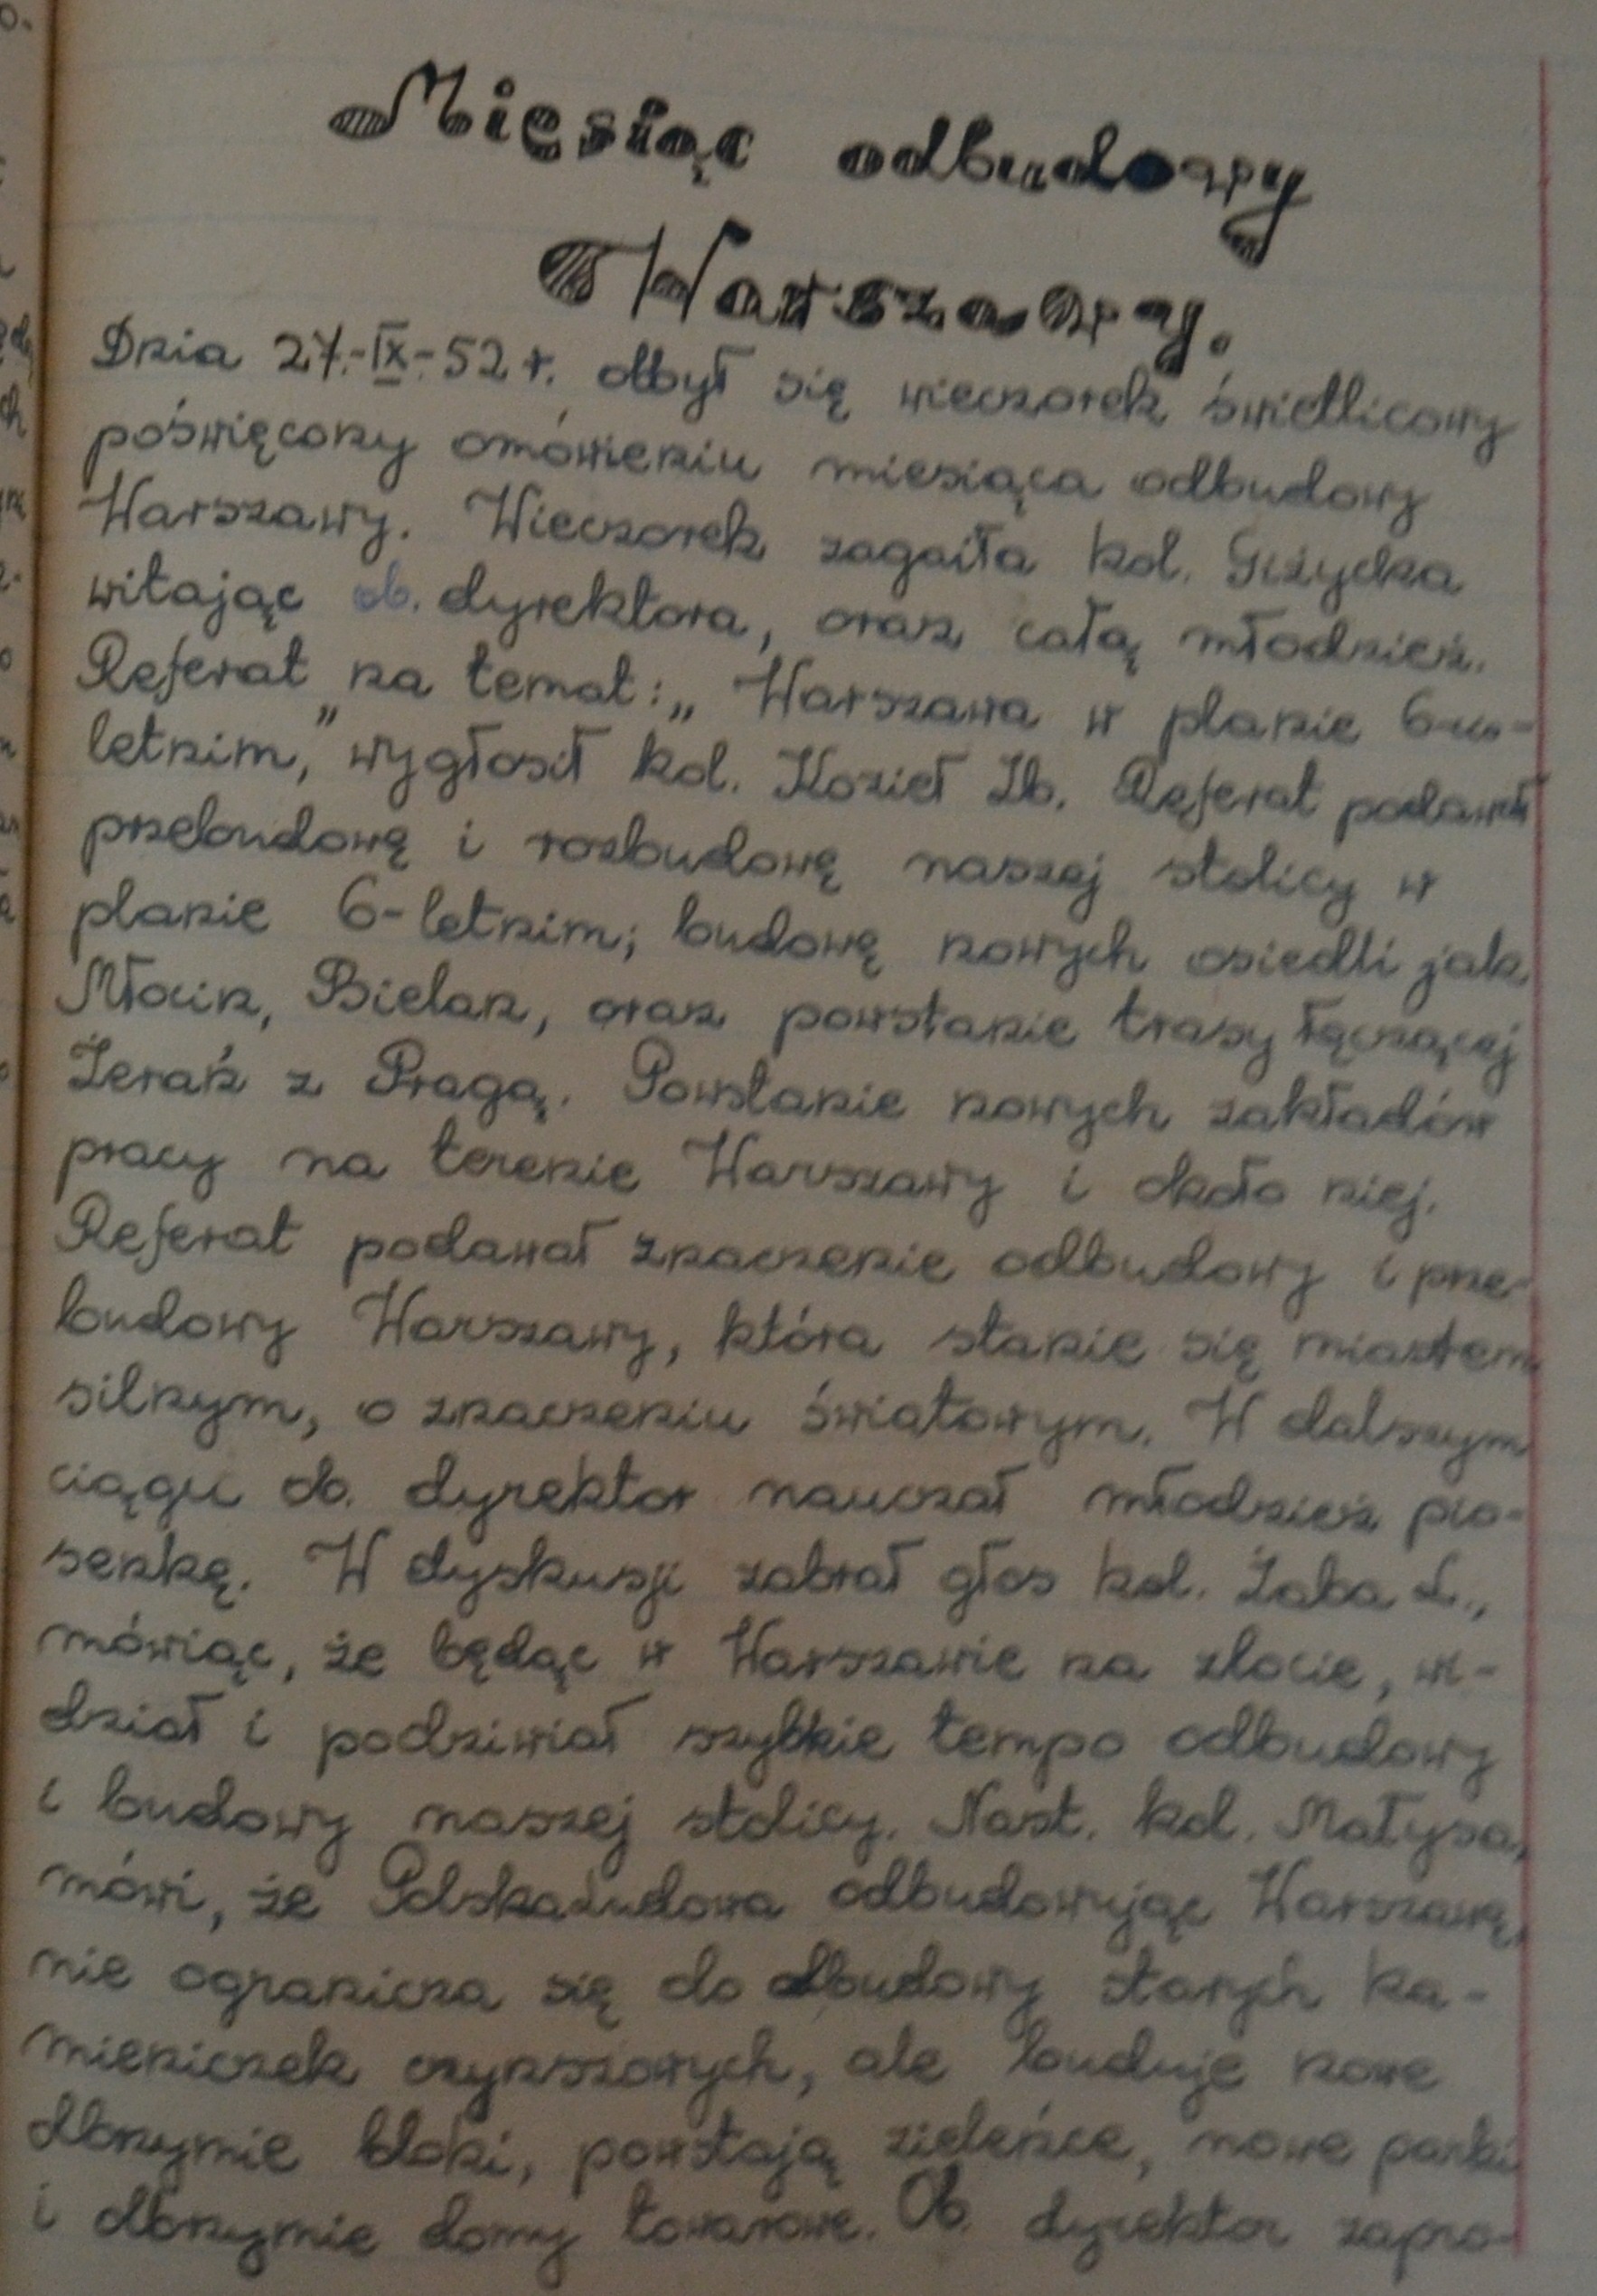 Miesiąc odbudowy
Warszawy.
Dnia 27.-IX-52 r. odbył się wieczorek świetlicowy
poświęcony omówieniu miesiąca odbudowy
Warszawy. Wieczorek zagaiła kol. Giżycka
witając ob. dyrektora, oraz całą młodzież.
Referat na temat: „Warszawa w planie 6-cio-
letnim," wygłosił kol. Kozieł Zb. Referat podawał
przebudowę i rozbudowę naszej stolicy w
planie 6-letnim; budowę nowych osiedli jak
Młocin, Bielan, oraz powstanie trasy łączącej
Żerań z Pragą. Powstanie nowych zakładów
pracy na terenie Warszawy i około niej.
Referat podawał znaczenie odbudowy i prze-
budowy Warszawy, która stanie się miastem
silnym, o znaczeniu światowym. W dalszym
ciągu ob. dyrektor nauczał młodzież pio-
senkę. W dyskusji zabrał głos kol. Żaba L.,
mówiąc, że będąc w Warszawie na zlocie, wi-
dział i podziwiał szybkie tempo odbudowy
i budowy naszej stolicy. Nast. kol. Małysa,
mówi, że Polska Ludowa odbudowując Warszawę,
nie ogranicza się do odbudowy starych ka-
mieniczek czynszowych, ale buduje nowe
olbrzymie bloki, powstają zieleńce, nowe parki
i olbrzymie domy towarowe. Ob. dyrektor zapro-